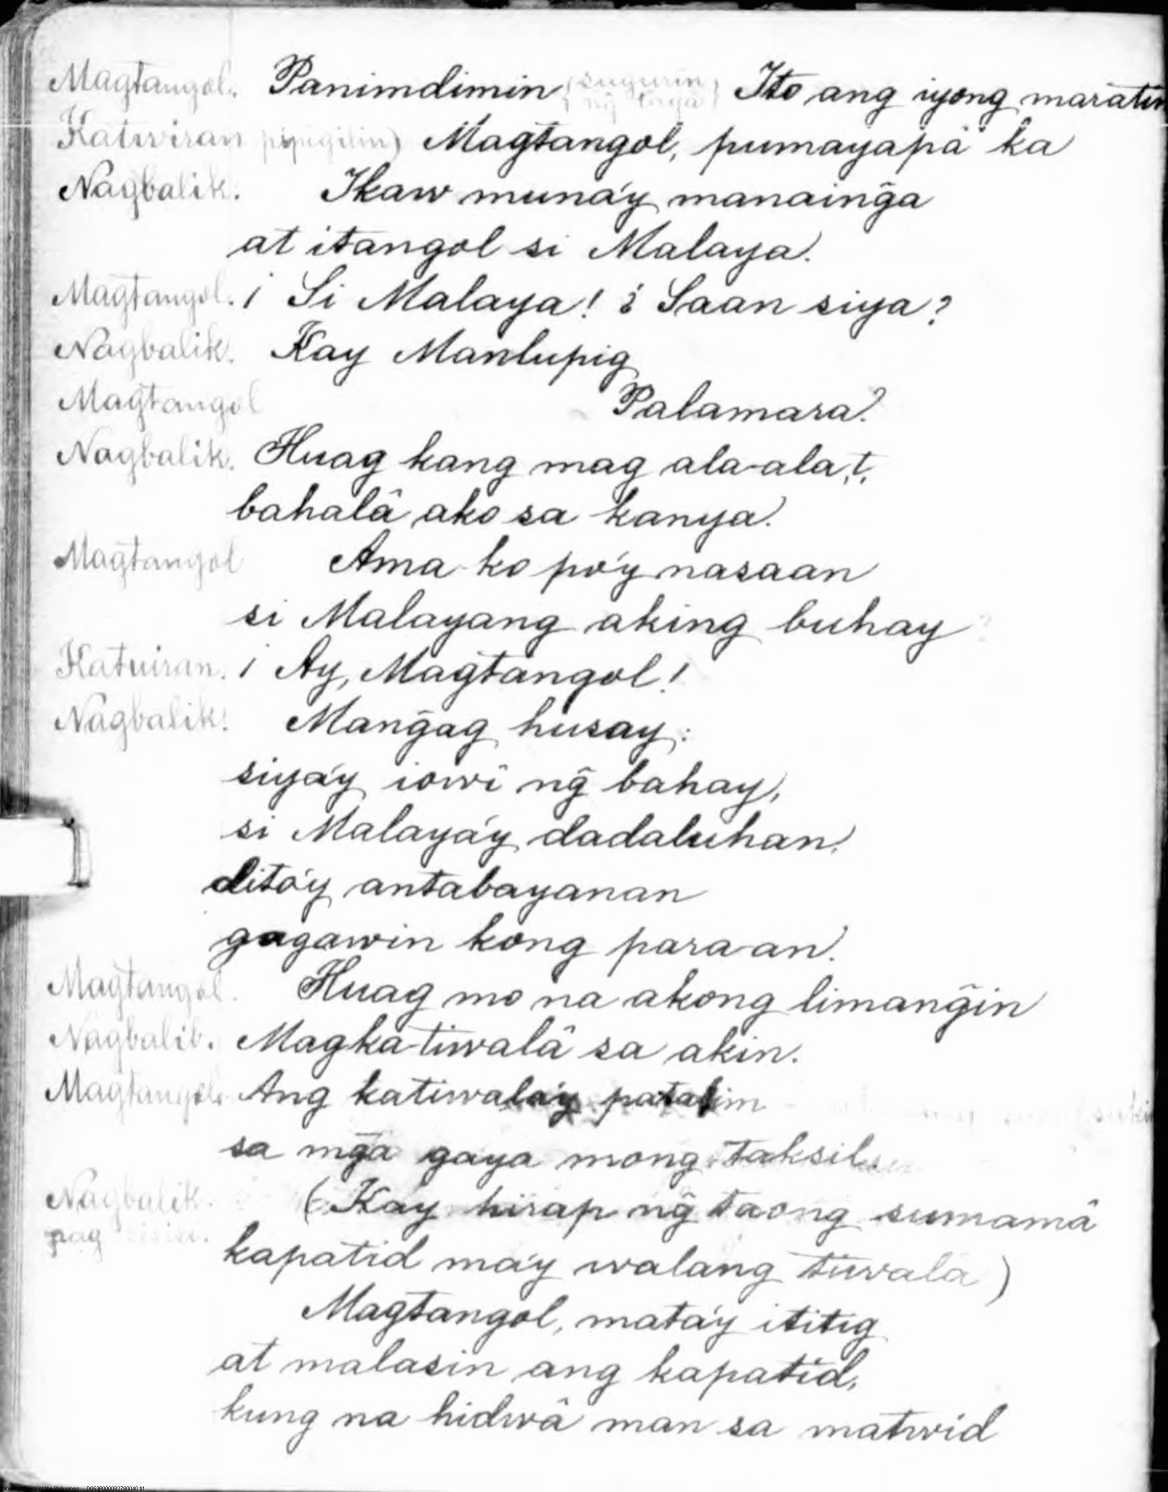 Magtangol. Panimdimin (sugurin ng tagâ) Ito ang iyong maratin
Katwiran pipigilin) Magtangol, pumayapâ ka
Nagbalik. Ikaw muna'y manaing̃a
at itangol si Malaya.
Magtangol. ¡ Si Malaya! ¿ Saan siya?
Nagbalik. Kay Manlupig
Magtangol Palamara?
Nagbalik. Huag kang mag ala-ala,t,
bahalâ ako sa kanya.
Magtangol Ama ko po'y nasaan
si Malayang aking buhay ?
Katuiran. ¡ Ay, Magtangol!
Nagbalik. Mang̃ag husay:
siya'y iowî ng̃ bahay,
si Malaya'y dadaluhan,
dito'y antabayanan
gagawin kong para-an.
Magtangol. Huag mo na akong limang̃in
Nagbalik. Magka-tiwalâ sa akin.
Magtangol. Ang katiwala'y patalim
sa mg̃a gaya mong taksil.
Nagbalik. (Kay hirap ng̃ taong sumamâ
pag
kapatid ma'y walang tiwala)
Magtangol, mata'y ititig
at malasin ang kapatid,
kung na hidwâ man sa matwid